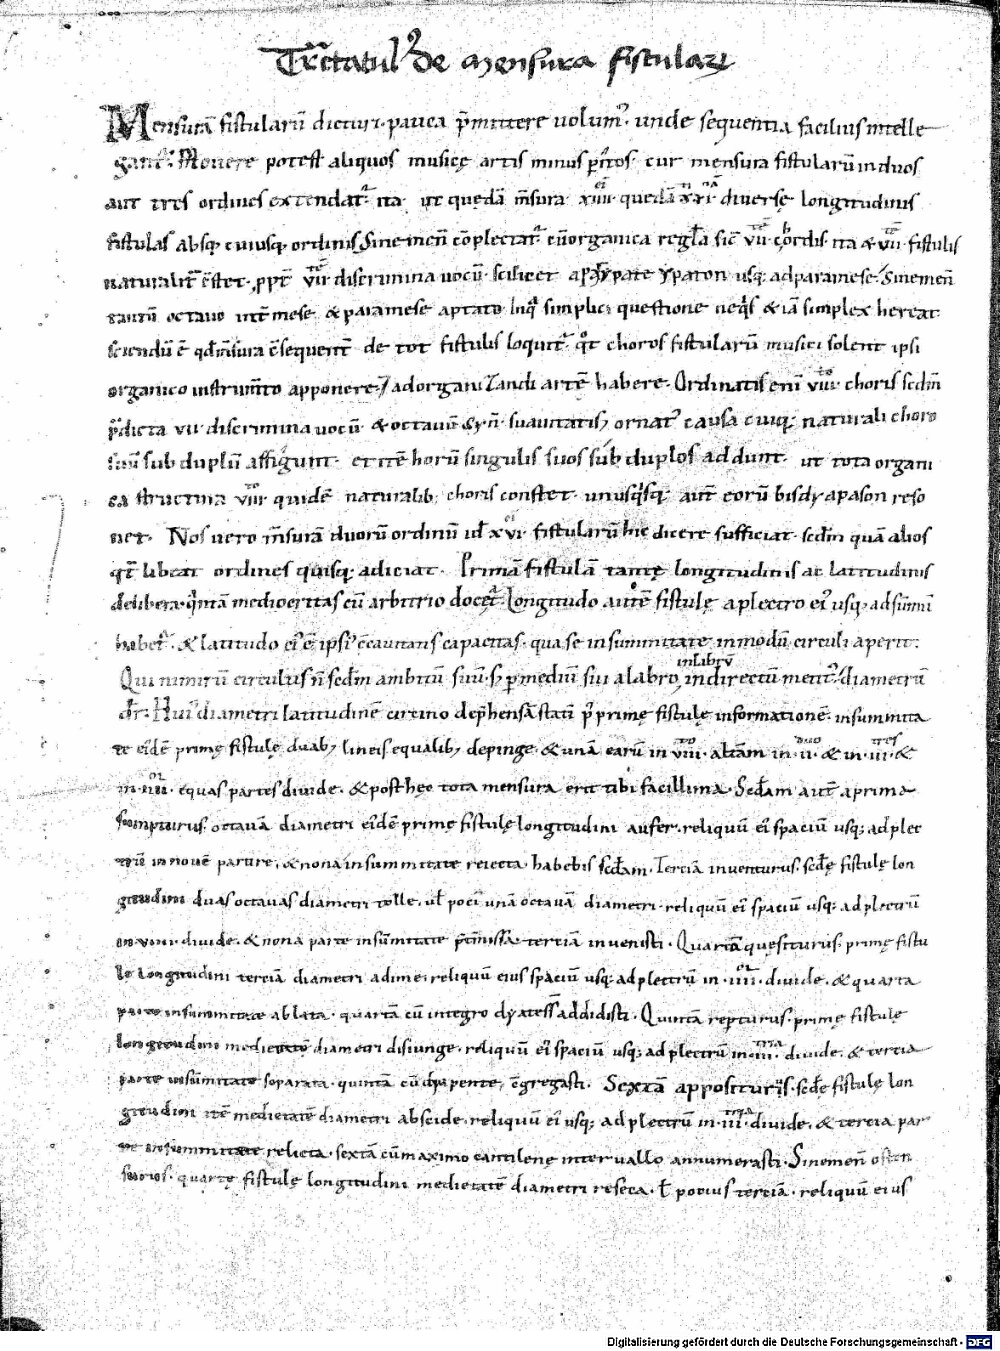 Tractatul᾽ de mensura fistularꝝ
Mensurā fistularū dicturi· pauca p̄mittere volum᾽· unde sequentia facilius intelle
gant᾽· Mouere potest aliquos musicę artis minus peritos· cur mensura fistularū in duos
aut tres ordines extendat᾽· ita ut quedā m̄sura xiiii quedā xxi diuersę longitudinis
fistulas absq; cuiusq; ordinis Sinemen̄ cōplectat᾽ cū organica regl̄a sic̄ vii cordis ita & vii· fistulis
naturalit̄ c̄stet· ꝓpt̄ vii discrimina uocū· scilicet a ypate ypaton usq; ad paramese· Sinemen̄
tantū octauo int̄ mese & paramese aptato In q̄ simplici questione neq̇s & iā simplex hereat
sciendū ē qd̄ m̄sura c̄sequent̄ de tot fistulis loquit᾽ qt̄ choros fistularū musici solent ipsi
organico instrum̄to apponere· ad organi Zandi artē habere· Ordinatis eni᾽ viii choris scd̄m
p̄dicta vii discrimina uocū & octauū syn̄· suauitatis ornat᾽ causa cuiq; naturali choro
suū sub duplū affigunt· et itē horū singulis suos sub duplos addunt· ut tota organi
ca structura viii quidē naturalib; choris constet· unusq̇sq; aut̄ eorū bis dyapason reso
net· Nos uero m̄surā duorū ordinū id ē xvi fistularū hic dicere sufficiat· scd̄m quā alios
qt̄ libeat ordines quisq; adiciat· Primā fistulā tantę longitudinis ac latitudinis
delibera· q̄ntā mediocritas cū arbitrio docet᾽· Longitudo autē fistulę a plectro ei᾽ usq; ad sum̄ū
habet᾽· & latitudo ei᾽ ē ipsi᾽ c̄cauitatis capacitas· qua se in summitate in modū circuli aperit·
Qui nimirū circulus n̄ scd̄m ambitū suū· s; p mediū sui a labro in labrū in directū metit᾽· diametrū
dr̄· Hui᾽ diametri latitudinē circino dep̄hensā statī p᾽ primę fistulę informationē· in summita
te ei᾽dē primę fistulę duab; lineis equalib; depinge· & unā earū in viii· aliam in· ii· & in· iii· &
in· iiii· equas partes diuide· & post hęc tota mensura erit tibi facillima· Scd̄am aut̄ a prima
sumpturus· octauā diametri ei᾽dē primę fistulę longitudini aufer· reliquū ei᾽ spaciū usq; ad plec
trū in nouē partire, & nona in summitate reiecta· habebis scd̄am· Terciā inuenturus· scd̄ę fistulę lon
gitudini duas octauas diametri tolle· ul̄ poci᾽ unā octauā diametri· reliquū ei᾽ spaciū usq; ad plectrū
in viiii· diuide· & nona parte in sūmitate p̄tmissa· terciā inuenisti· Quartā quęsiturus· primę fistu
lę longitudini terciā diametri adime· reliquū eius spaciū usq; ad plectrū in· iiii· diuide· & quarta
parte in summitate ablata· quartā cū integro dyatess̄ addidisti· Quintā repturus· primę fistulę
longitudini medietatē diametri disiunge· reliquū ei᾽ spaciū usq; ad plectrū in· iii· diuide· & tercia
parte in sūmitate separata· quintā cū dyapente, c̄gregasti· Sextā appositurus· scd̄ę fistulę lon
gitudini itē medietatē diametri abscide· reliquū ei᾽ usq; ad plectrū in· iii· diuide· & tercia par
te in summitate relicta· sextā cū maximo cantilenę interuallo annumerasti· Sinemen̄ osten
surus· quartę fistulę longitudini medietatē diametri reseca· ł potius terciā· reliquū eius
Digitalisierung gefördert durch die Deutsche Forschungsgemeinschaft - DFG